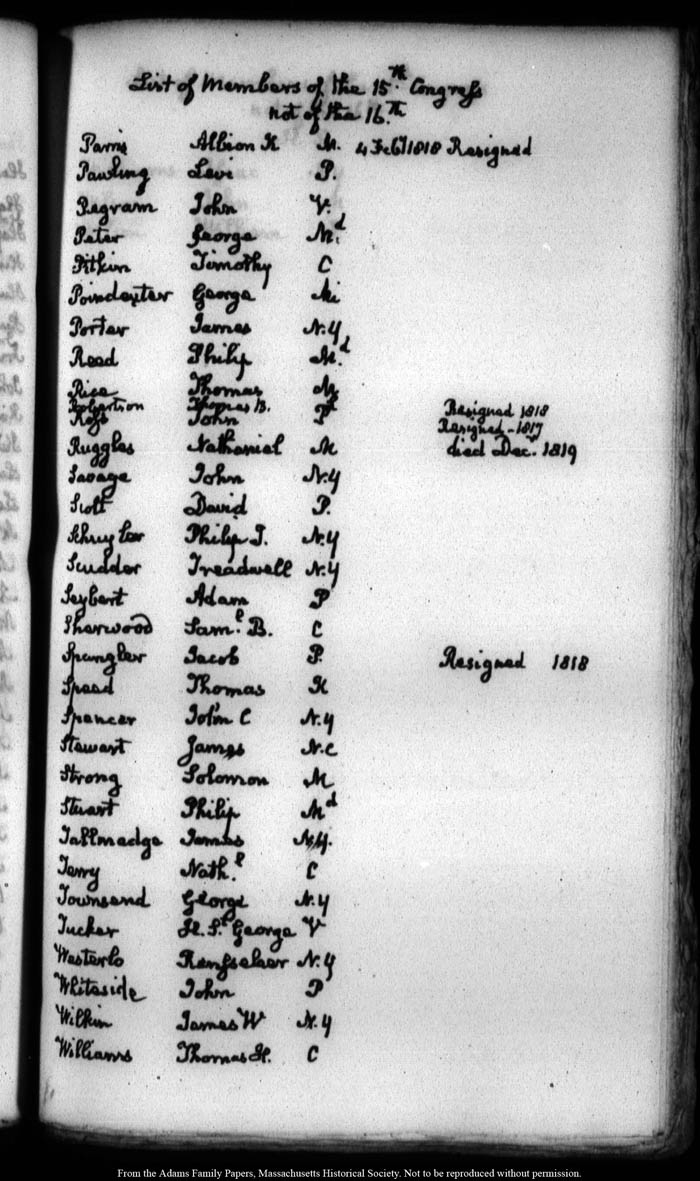 List of Members of the 15.th Congress
not of the 16.th
Parris Albion K M. 4 Feby 1818 Resigned
Pawling Levi P.
Pegram John V.
Peter George M.d
Pitkin Timothy C
Poindexter George Mi
Porter James N.Y
Reed Philip M.d
Rice Thomas M
Robertson Thomas B. Resigned 1818
Ross John P Resigned - 1817
Ruggles Nathaniel M died Dec.r 1819
Savage John N.Y
Scott David P.
Schuyler Philip J. N.Y
Scudder Treadwell N.Y
Seybert Adam P
Sherwood Sam.l B. C
Spangler Jacob P. Resigned 1818
Speed Thomas K
Spencer John C N.Y
Stewart James N.C
Strong Solomon M
Stuart Philip Md
Tallmadge James N.Y.
Terry Nath.l C
Townsend George N.Y
Tucker H. St. George V
Westerlo Rensselaer N.Y
Whiteside John P
Wilkin James W N.Y
Williams Thomas H. C
From the Adams Family Papers, Massachusetts Historical Society. Not to be reproduced without permission.